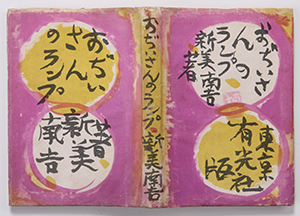 おぢいさ
んの
ランプ
新美南吉
著
東京
有光社
版
おぢいさんのランプ 新美南吉著
おぢい
さん
のランプ
著
新美
南吉